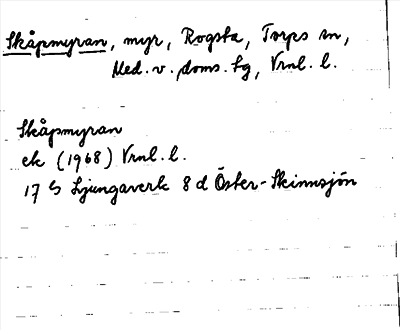 Skåpmyran, myr, Rogsta, Torps sn,
Med. v. doms. sg, Vrnl. l.
Skåpmyran
ek (1968) Vrnl. l.
17 G Ljungaverk 8 d Öster-Skinnsjön